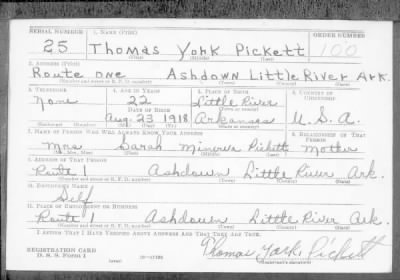 SERIAL NUMBER 1. NAME (Print) ORDER NUMBER
25 Thomas York Pickett 100
(First) (Middle) (Last)
2. ADDRESS (Print)
Route one Ashdown Little River Ark.
(Number and street or R. F. D. number) (Town) (County) (State)
3. TELEPHONE 4. AGE IN YEARS 5. PLACE OF BIRTH 6. COUNTRY OF CITIZENSHIP
None 22 Little River
DATE OF BIRTH
Aug. 23 1918 Arkansas U.S.A.
7. NAME OF PERSON WHO WILL ALWAYS KNOW YOUR ADDRESS 8. RELATIONSHIP OF THAT PERSON
Mrs Sarah Minerva Pickett Mother
9. ADDRESS OF THAT PERSON
Route 1 Ashdown Little River Ark.
(Number and street or R. F. D. number) (Town) (County) (State)
10. EMPLOYER'S NAME
Self
11. PLACE OF EMPLOYMENT OR BUSINESS
Route 1 Ashdown Little River Ark.
(Number and street or R. F. D. number) (Town) (County) (State)
I AFFIRM THAT I HAVE VERIFIED ABOVE ANSWERS AND THAT THEY ARE TRUE.
REGISTRATION CARD
D. S. S. Form 1
Thomas York Pickett
(Registrant's signature)